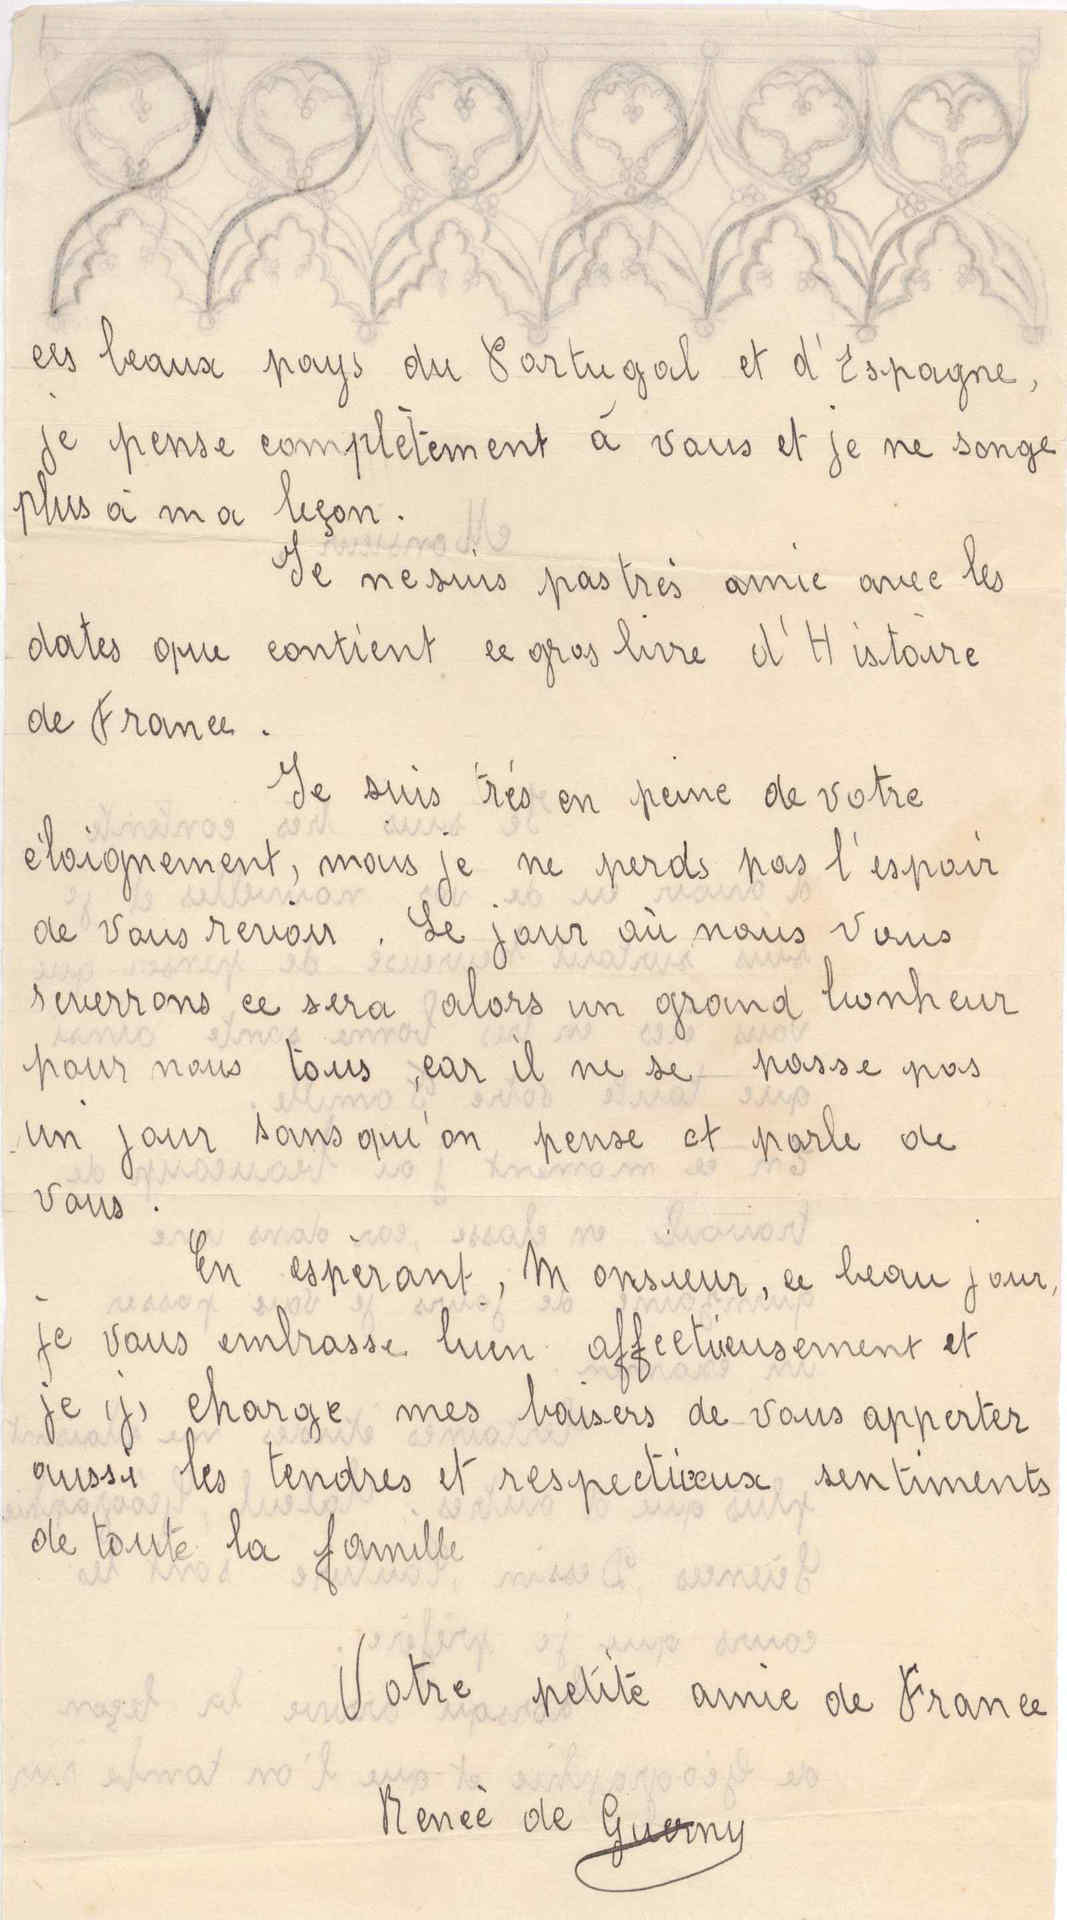 ces beaux pays du Portugal et d'Espagne,
je pense complètement à vous et je ne songe
plus à ma leçon.
Je ne suis pas très amie avec les
dates que contient ce gros livre d'Histoire
de France.
Je suis très en peine de votre
éloignement, mais je ne perds pas l'espoir
de vous revoir. Le jour où nous vous
reverrons ce sera alors un grand bonheur
pour nous tous, car il ne se passe pas
un jour sans qu'on pense et parle de
vous.
En espérant, Monsieur, ce beau jour,
je vous embrasse bien affectieusement et
je charge mes baisers de vous apporter
aussi les tendres et respectueux sentiments
de toute la famille
Votre petite amie de France
Renée de